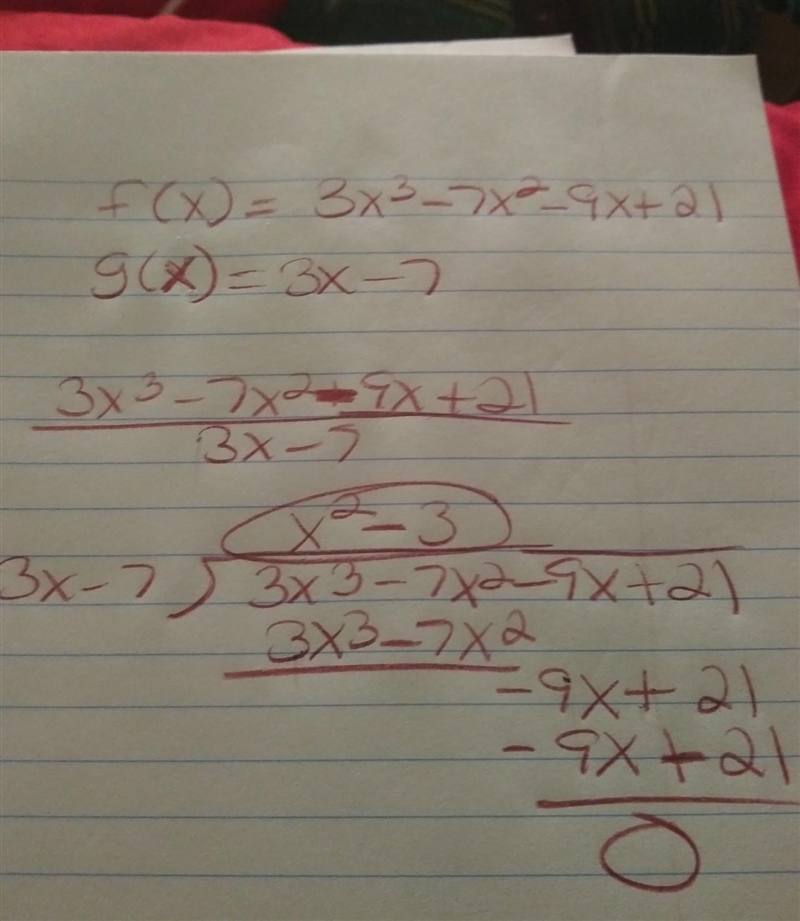 f(x) = 3x³ - 7x² - 9x + 21
g(x) = 3x - 7
3x³ - 7x² - 9x + 21
3x - 7
x² - 3
3x - 7 ) 3x³ - 7x² - 9x + 21
3x³ - 7x²
- 9x + 21
- 9x + 21
0